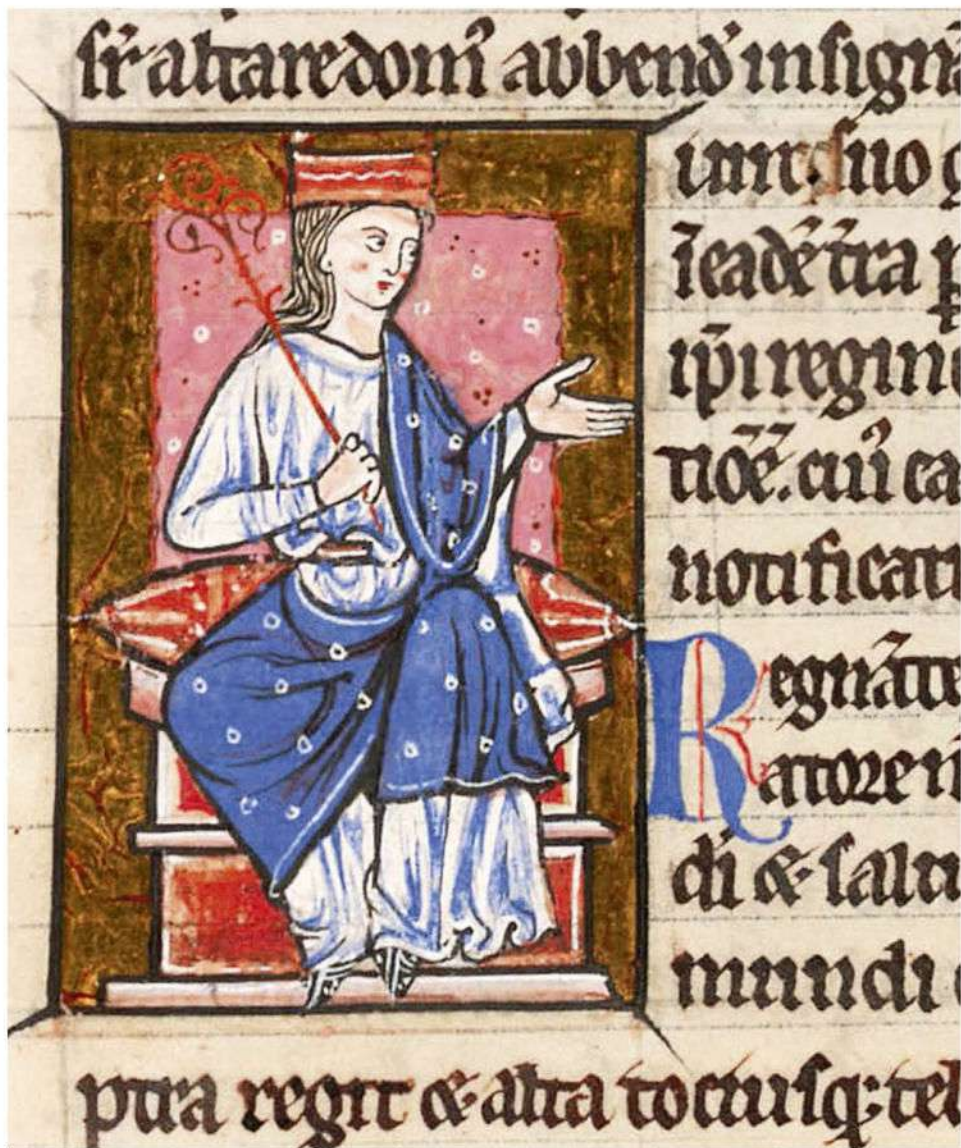 sr̄ altare domᷣ abbendᷣ insign
suo
ī eadē t̄ra p
ip̄i regin
tiōē. cuiᷣ ca
notificati
Regnāte
atore n
di &
mundi
ptra regit & alta tociusq; tel